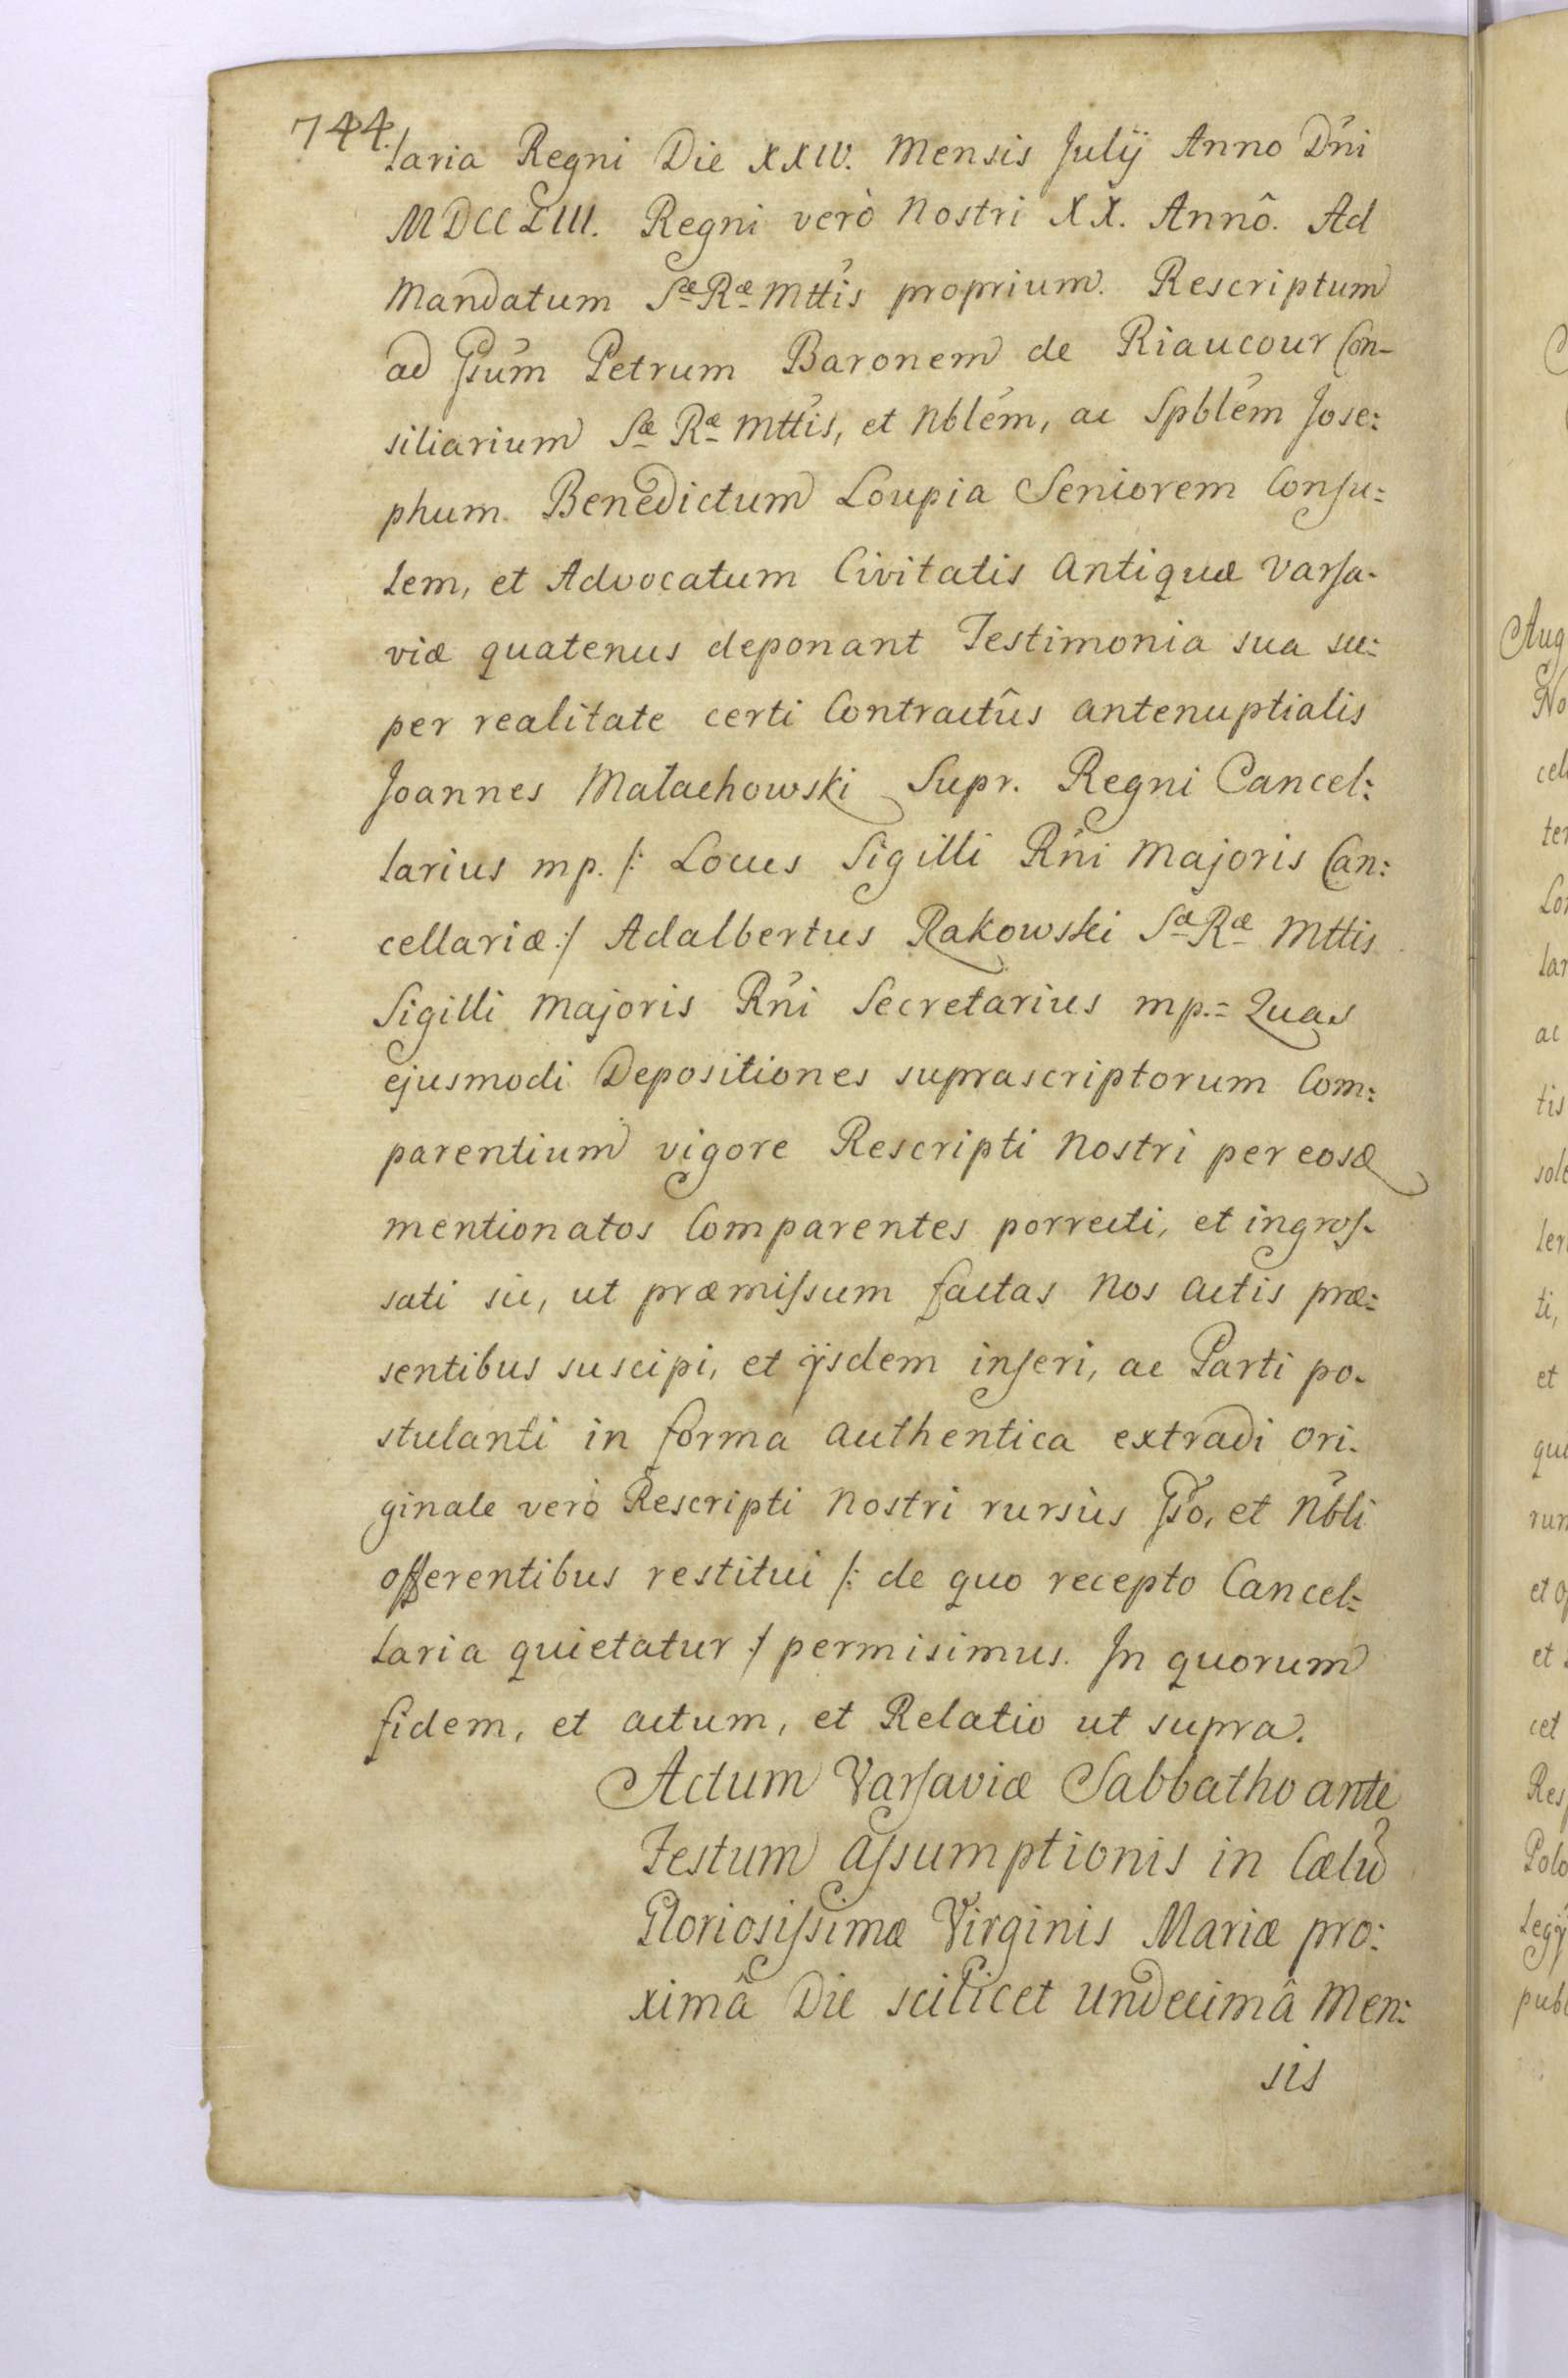 744.
laria Regni Die XXIV. Mensis Julij Anno Dńi
MDCCLIII. Regni verò Nostri XX. Annô. Ad
Mandatum Sæ Ræ Mttis proprium. Rescriptum
ad Gsum Petrum Baronem de Riaucour Con-
siliarium Sæ Ræ Mttis, et Nblem, ac Spblem Jose:
phum Benedictum Loupia Seniorem Consu=
lem, et Advocatum Civitatis Antiquæ Varsa-
viæ quatenus deponant Testimonia sua su:
per realitate certi Contractûs antenuptialis
Joannes Małachowski Supr. Regni Cancel:
larius mp. /: Locus Sigilli Rńi Majoris Can:
cellariæ :/ Adalbertus Rakowski Sæ Ræ Mttis
Sigilli Majoris Rńi Secretarius mp.= Quas
ejusmodi Depositiones suprascriptorum Com:
parentium vigore Rescripti Nostri per eosd
mentionatos Comparentes porrecti, et ingros-
sati sic, ut præmissum factas Nos Actis præ:
sentibus suscipi, et ijsdem inseri, ac Parti po-
stulanti in forma authentica extradi ori-
ginale verò Rescripti Nostri rursùs Gso, et Nbli
offerentibus restitui /: de quo recepto Cancel=
laria quietatur :/ permisimus. In quorum
fidem, et actum, et Relatio ut supra.
Actum Varsaviæ Sabbatho ante
Festum Assumptionis in Cælũ
Gloriosissimæ Virginis Mariæ pro:
ximâ Die scilicet Undecimâ Men:
sis